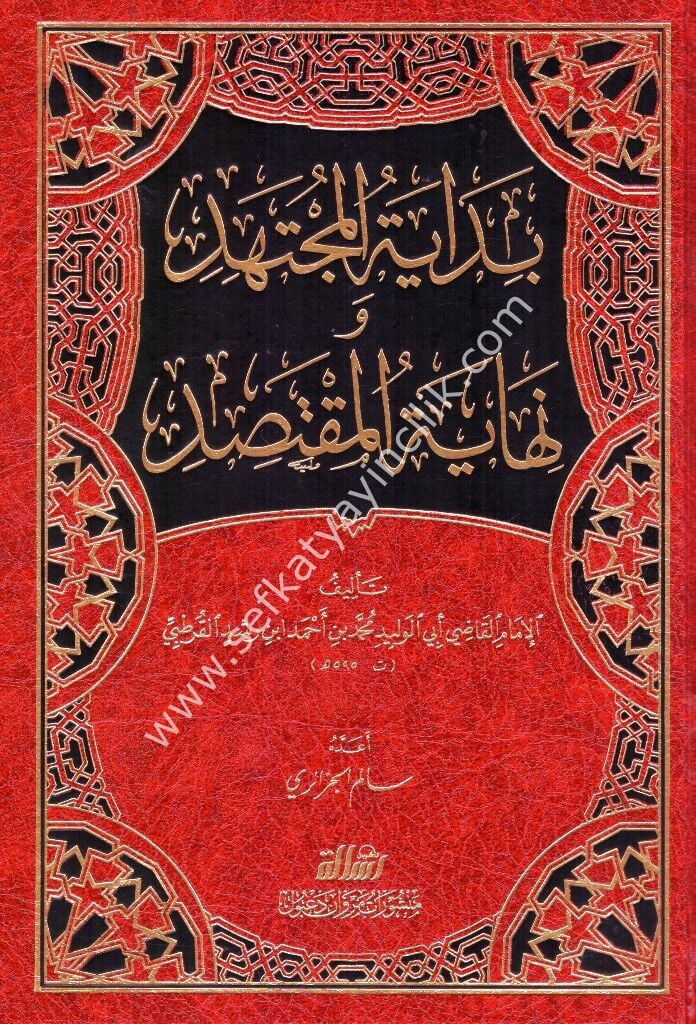 بِدَايَةُ المُجْتَهِدِ
وَ
نِهَايَةُ المُقْتَصِدِ
تَأليفُ
الإِمَامِ القَاضِي أَبِي الوَلِيدِ مُحَمَّد بن أَحْمَد ابن رشد القُرطُبيِّ
(ت ٥٩٥ هـ)
أَعَدَّهُ
سالم الجزائري
رسالة
منشورات مروان دعبول
www.sefkatyayincilik.com